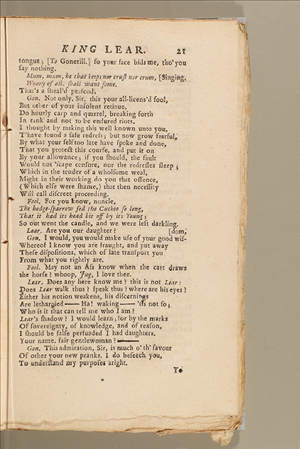 KING LEAR. 21
tongue; [To Gonerill.] so your face bids me, tho' you
say nothing.
Mum, mum, he that keeps nor crust nor crum, [Singing.
Weary of all, shall want some.
That's a sheal'd peascod.
Gon. Not only, Sir, this your all-licens'd fool,
But other of your insolent retinue,
Do hourly carp and quarrel, breaking forth
In rank and not to be endured riots.
I thought by making this well known unto you,
T'have found a safe redress; but now grow fearful,
By what your self too late have spoke and done,
That you protect this course, and put it on
By your allowance; if you should, the fault
Would not 'scape censure, nor the redresses sleep;
Which in the tender of a wholesome weal,
Might in their working do you that offence,
(Which else were shame,) that then necessity
Will call discreet proceeding.
Fool. For you know, nuncle,
The hedge-sparrow fed the Cuckoo so long,
That it had its head bit off by its Young;
So out went the candle, and we were left darkling.
Lear. Are you our daughter? [dom,
Gon. I would, you would make use of your good wis-
Whereof I know you are fraught, and put away
These dispositions, which of late transport you
From what you rightly are.
Fool. May not an Ass know when the cart draws
the horse? whoop, Jug, I love thee.
Lear. Does any here know me? this is not Lear:
Does Lear walk thus? speak thus? where are his eyes?
Either his notion weakens, his discernings
Are lethargied — Ha! waking — 'tis not so;
Who is it that can tell me who I am?
Lear's shadow? I would learn; for by the marks
Of sovereignty, of knowledge, and of reason,
I should be false persuaded I had daughters.
Your name, fair gentlewoman? —
Gon. This admiration, Sir, is much o' th' savour
Of other your new pranks. I do beseech you,
To understand my purposes aright.
To